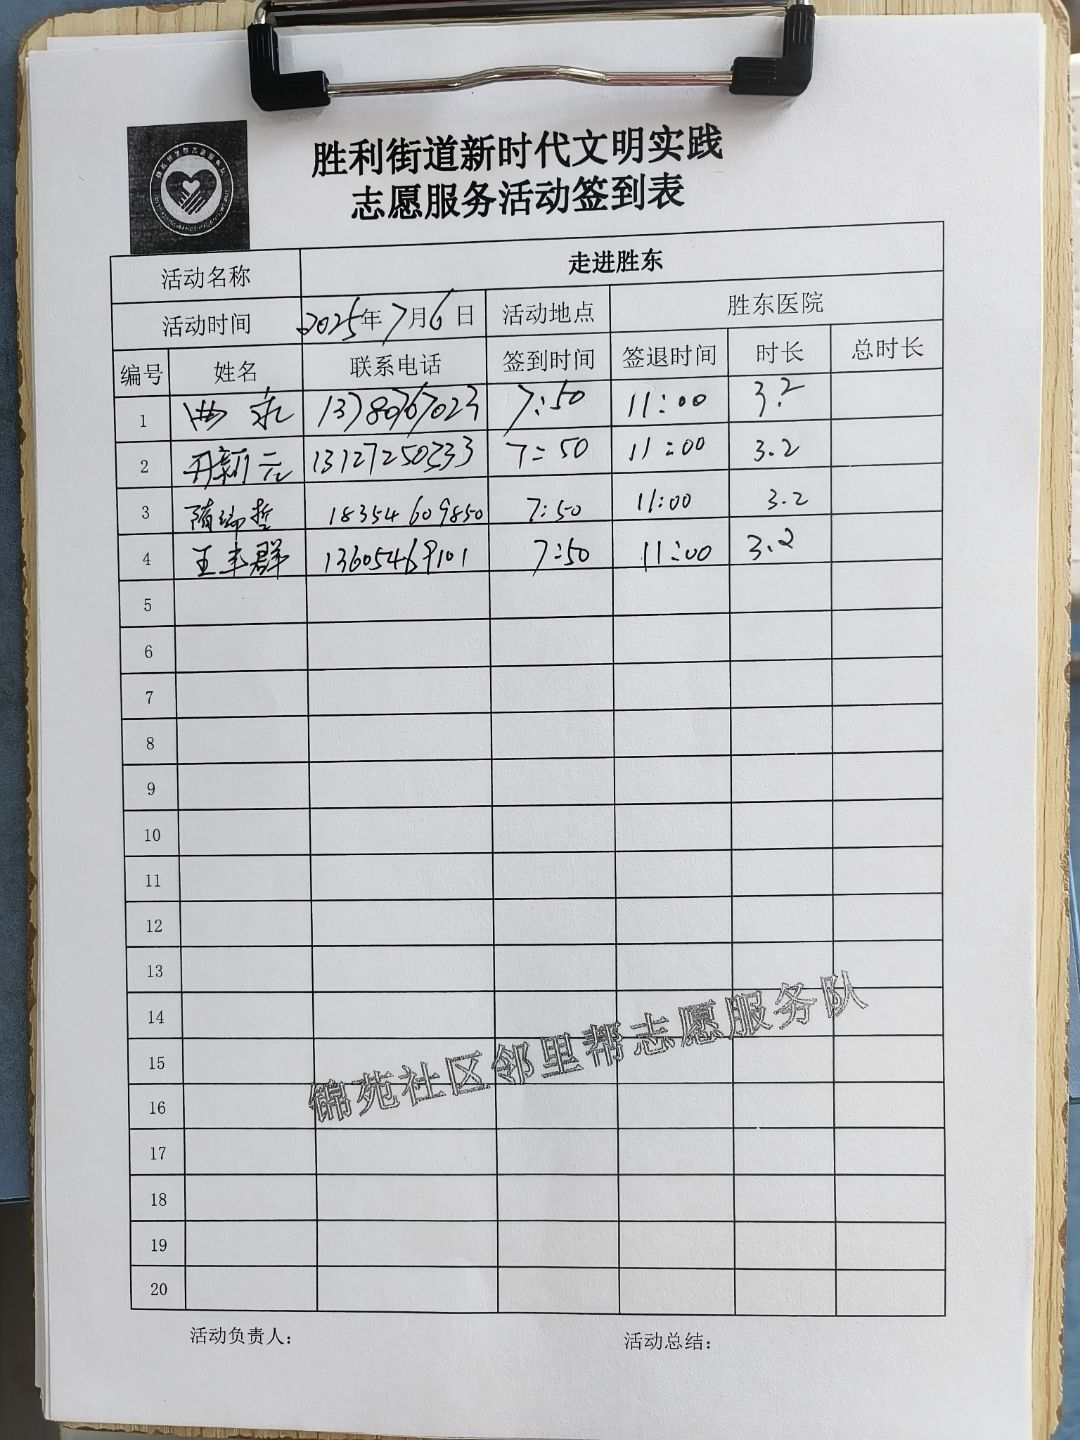 胜利街道新时代文明实践
志愿服务活动签到表
活动名称 走进胜东
活动时间 2025年7月6日 活动地点 胜东医院
编号 姓名 联系电话 签到时间 签退时间 时长 总时长
1 曲永 13780767023 7:50 11:00 3.2
2 新元 13127250333 7:50 11:00 3.2
3 隋瑞哲 18354609850 7:50 11:00 3.2
4 王丰群 13605469101 7:50 11:00 3.2
5
6
7
8
9
10
11
12
13
14
15
16
17
18
19
20
锦苑社区邻里帮志愿服务队
活动负责人: 活动总结: